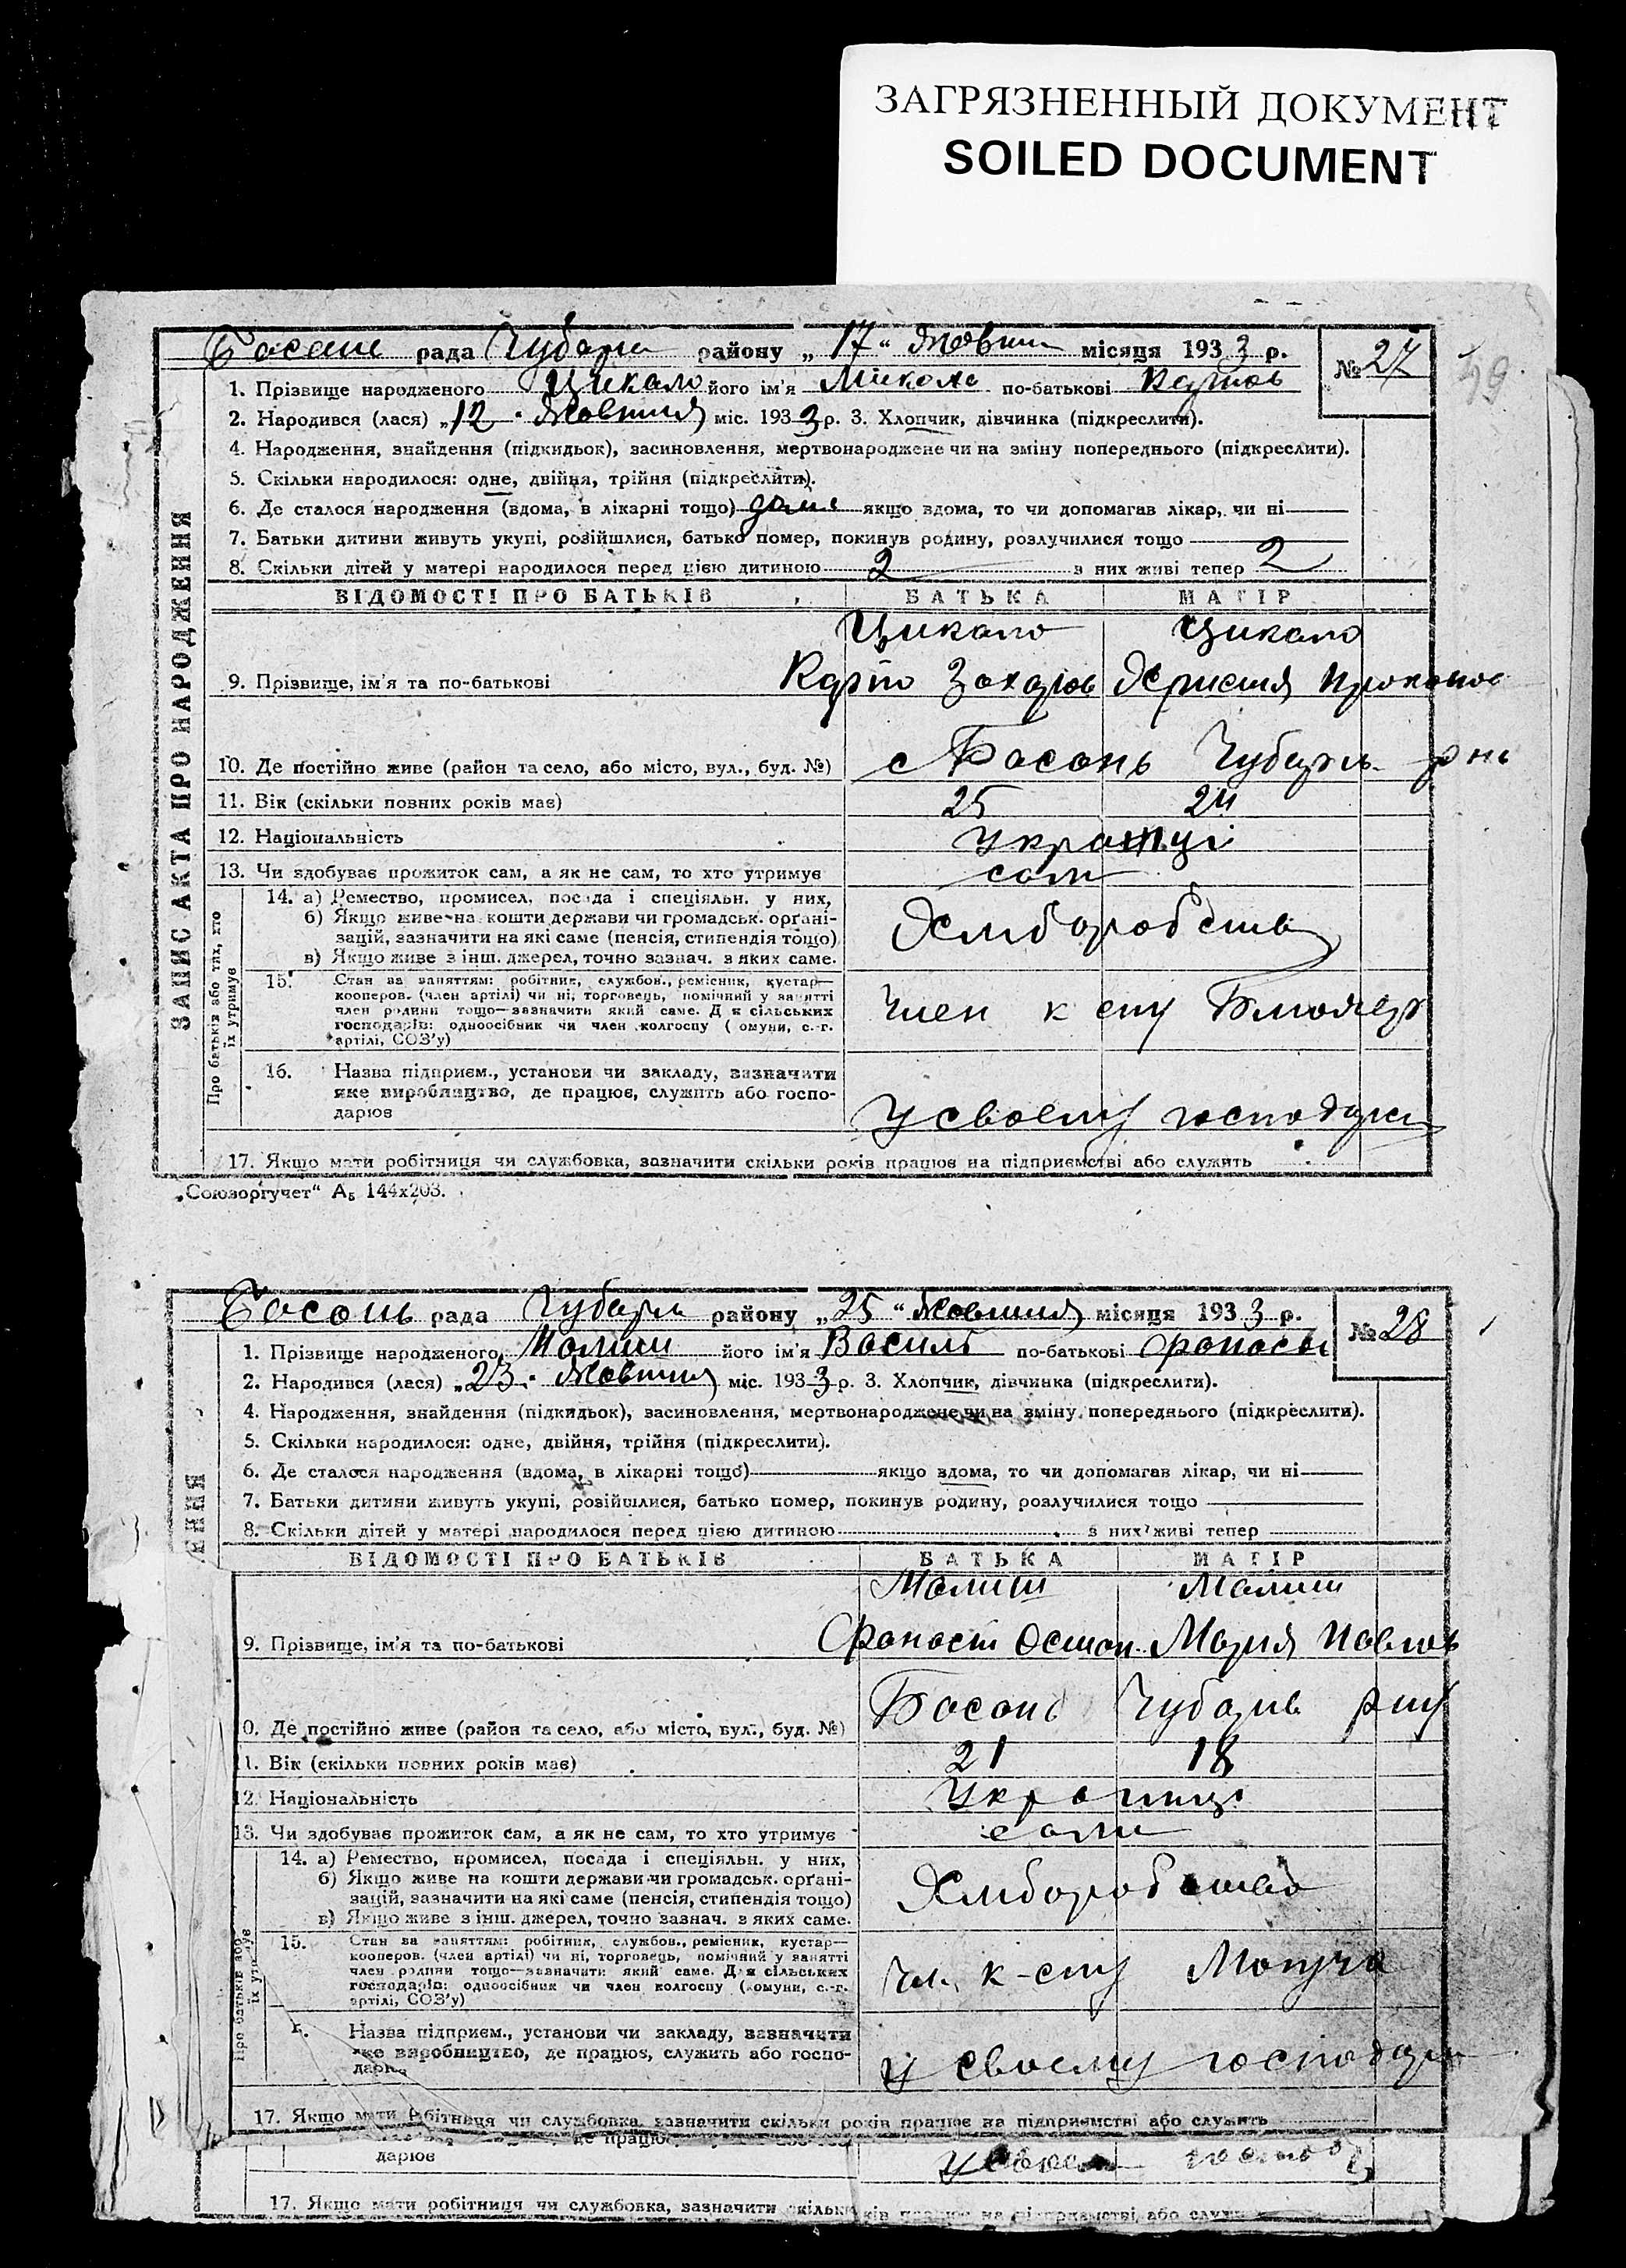 ЗАГРЯЗНЕННЫЙ ДОКУМЕНТ
SOILED DOCUMENT
рада Чубарів району „17“ Жовтня місяця 1933 р.
№ 27
49
1. Прізвище народженого Цикало його ім'я Микола по-батькові Карпов
2. Народився (лася) „12 Жовтня міс. 1933 р. 3. Хлопчик, дівчинка (підкреслити).
4. Народження, знайдення (підкидьок), засиновлення, мертвонароджене чи на зміну попереднього (підкреслити).
5. Скільки народилося: одне, двійня, трійня (підкреслити).
6. Де сталося народження (вдома, в лікарні тощо) дома якщо вдома, то чи допомагав лікар, чи ні
7. Батьки дитини живуть укупі, розійшлися, батько помер, покинув родину, розлучилися тощо
8. Скільки дітей у матері народилося перед цією дитиною 2 з них живі тепер 2
ВІДОМОСТІ ПРО БАТЬКІВ БАТЬКА МАТІР
Цикало Цикало
9. Прізвище, ім'я та по-батькові Карпо Захаров Прокопов
10. Де постійно живе (район та село, або місто, вул., буд. №) с Басань Чубарів рні
11. Вік (скільки повних років має) 25 24
12. Національність Українці
13. Чи здобуває прожиток сам, а як не сам, то хто утримує сами
14. а) Ремество, промисел, посада і спеціяльн. у них,
б) Якщо живе на кошти держави чи громадськ. орґані-
зацій, зазначити на які саме (пенсія, стипендія тощо)
в) Якщо живе з інш. джерел, точно зазнач. з яких саме.
Хліборобства
15. Стан за заняттям: робітник, службов., ремісник, кустар—
кооперов. (член артілі) чи ні, торговець, помічний у занятті
член родини тощо—зазначити який саме. Для сільських
господарів: одноосібник чи член колгоспу (комуни, с.-г.
артілі, СОЗ'у)
член к спу
16. Назва підприєм., установи чи закладу, зазначити
яке виробництво, де працює, служить або госпо-
дарює
У своему господарі
17. Якщо мати робітниця чи службовка, зазначити скільки років працює на підприємстві або служить
ЗАПИС АКТА ПРО НАРОДЖЕННЯ
Про батьків або тих, хто
їх утримує
„Союзоргучет“ А₅ 144х203.
Басань рада Чубарів району „25“ Жовтня місяця 1933 р.
№ 28
1. Прізвище народженого Малиш його ім'я Василь по-батькові Фанасьв
2. Народився (лася) „23 Жовтня міс. 1933 р. 3. Хлопчик, дівчинка (підкреслити).
4. Народження, знайдення (підкидьок), засиновлення, мертвонароджене чи на зміну попереднього (підкреслити).
5. Скільки народилося: одне, двійня, трійня (підкреслити).
6. Де сталося народження (вдома, в лікарні тощо) якщо вдома, то чи допомагав лікар, чи ні
7. Батьки дитини живуть укупі, розійшлися, батько помер, покинув родину, розлучилися тощо
8. Скільки дітей у матері народилося перед цією дитиною з них живі тепер
ВІДОМОСТІ ПРО БАТЬКІВ БАТЬКА МАТІР
Малиш Малиш
9. Прізвище, ім'я та по-батькові Остап. Мария Павлов
0. Де постійно живе (район та село, або місто, вул., буд. №) Басань Чубарів рну
11. Вік (скільки повних років має) 21 18
12. Національність Українці
13. Чи здобуває прожиток сам, а як не сам, то хто утримує сами
14. а) Ремество, промисел, посада і спеціяльн. у них,
б) Якщо живе на кошти держави чи громадськ. орґані-
зацій, зазначити на які саме (пенсія, стипендія тощо)
в) Якщо живе з інш. джерел, точно зазнач. з яких саме.
Хліборобство
15. Стан за заняттям: робітник, службов., ремісник, кустар—
кооперов. (член артілі) чи ні, торговець, помічний у занятті
член родини тощо—зазначити який саме. Для сільських
господарів: одноосібник чи член колгоспу (комуни, с.-г.
артілі, СОЗ'у)
Чл. к-спу
Назва підприєм., установи чи закладу, зазначити
яке виробництво, де працює, служить або госпо-
дарює
У своему господарі
17. Якщо мати робітниця чи службовка, зазначити скільки років працює на підприємстві або служить
ННЯ
де працює
дарює
У своем
17. Якщо мати робітниця чи службовка, зазначити скільки років працює на підприємстві або служить